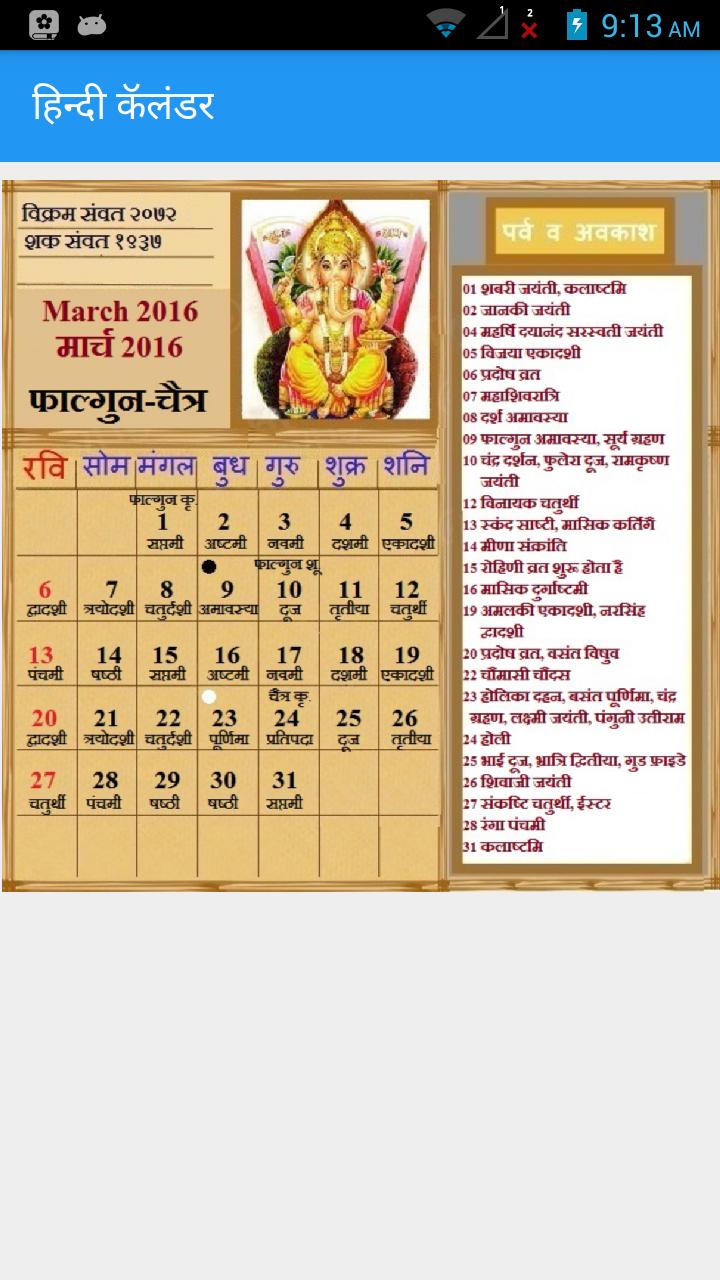 1 2 9:13 AM
हिन्दी कॅलंडर
विक्रम संवत २०७२
शक संवत १९३७
March 2016
मार्च 2016
फाल्गुन-चैत्र
रवि सोम मंगल बुध गुरु शुक्र शनि
फाल्गुन कृ.
1 2 3 4 5
सप्तमी अष्टमी नवमी दशमी एकादशी
फाल्गुन शू.
6 7 8 9 10 11 12
द्वादशी त्रयोदशी चतुर्दशी अमावस्या दूज तृतीया चतुर्थी
13 14 15 16 17 18 19
पंचमी षष्ठी सप्तमी अष्टमी नवमी दशमी एकादशी
चैत्र कृ.
20 21 22 23 24 25 26
द्वादशी त्रयोदशी चतुर्दशी पूर्णिमा प्रतिपदा दूज तृतीया
27 28 29 30 31
चतुर्थी पंचमी षष्ठी षष्ठी सप्तमी
पर्व व अवकाश
01 शबरी जयंती, कलाष्टमि
02 जानकी जयंती
04 महर्षि दयानंद सरस्वती जयंती
05 विजया एकादशी
06 प्रदोष व्रत
07 महाशिवरात्रि
08 दर्श अमावस्या
09 फाल्गुन अमावस्या, सूर्य ग्रहण
10 चंद्र दर्शन, फुलेरा दूज, रामकृष्ण
जयंती
12 विनायक चतुर्थी
13 स्कंद साष्टी, मासिक कर्तिगै
14 मीणा संक्रांति
15 रोहिणी व्रत शुरू होता है
16 मासिक दुर्गाष्टमी
19 अमलकी एकादशी, नरसिंह
द्वादशी
20 प्रदोष व्रत, वसंत विषुव
22 चौमासी चौदस
23 होलिका दहन, बसंत पूर्णिमा, चंद्र
ग्रहण, लक्ष्मी जयंती, पंगुनी उतीराम
24 होली
25 भाई दूज, भ्रात्रि द्वितीया, गुड फ्राइडे
26 शिवाजी जयंती
27 संकष्टि चतुर्थी, ईस्टर
28 रंगा पंचमी
31 कलाष्टमि